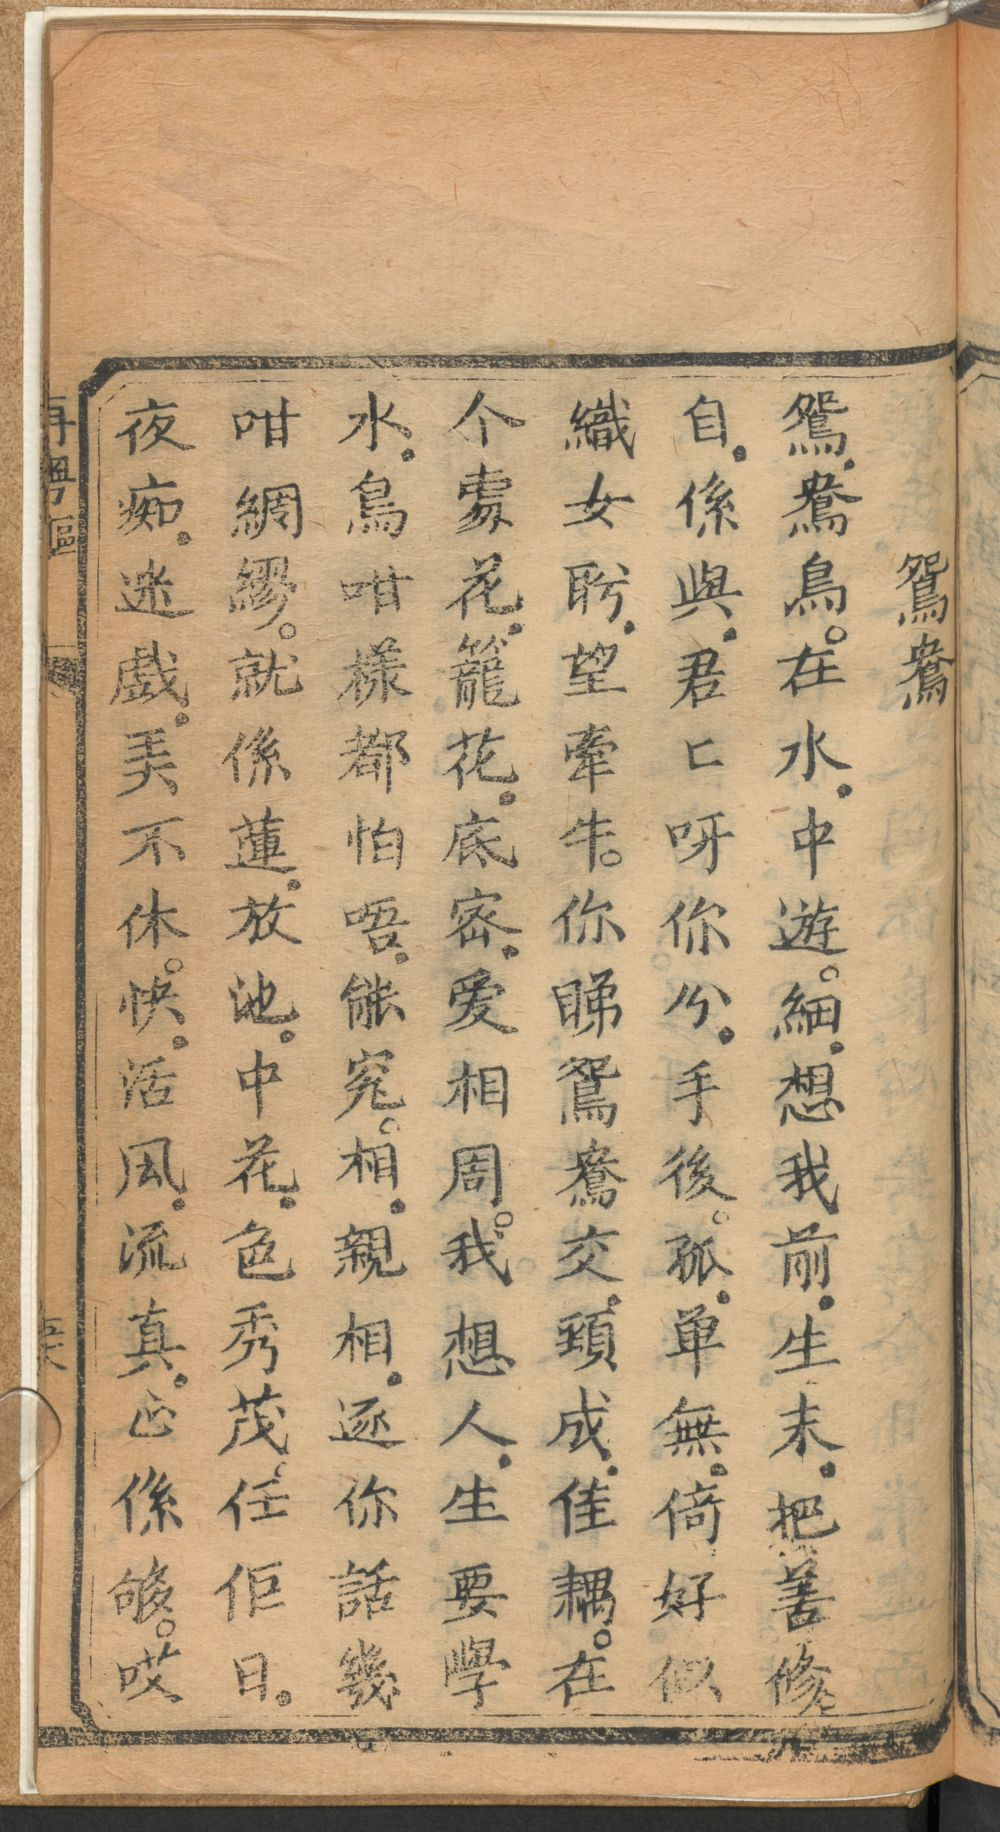 鴛鴦
鴛鴦鳥。在水中遊。細想我前生未把善修
自係與君匕呀你分手後。孤單無倚好似
織女盻望牽牛。你睇鴛鴦交頸成佳耦。在
个霧花籠花底密愛相周。我想人生要學
水鳥咁樣都怕唔能究。相親相逐你話幾
咁綢繆。就係蓮放池中花色秀茂。任佢日
夜痴迷戲美不休。快活風流真正係够。哎
再粵謳